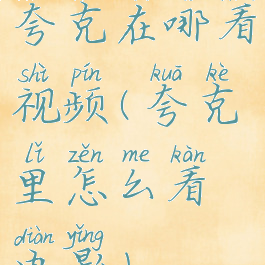 夸克在哪看
shì pín kuā kè
视频(夸克
lǐ zěn me kàn
里怎么看
diàn yǐng
电影)